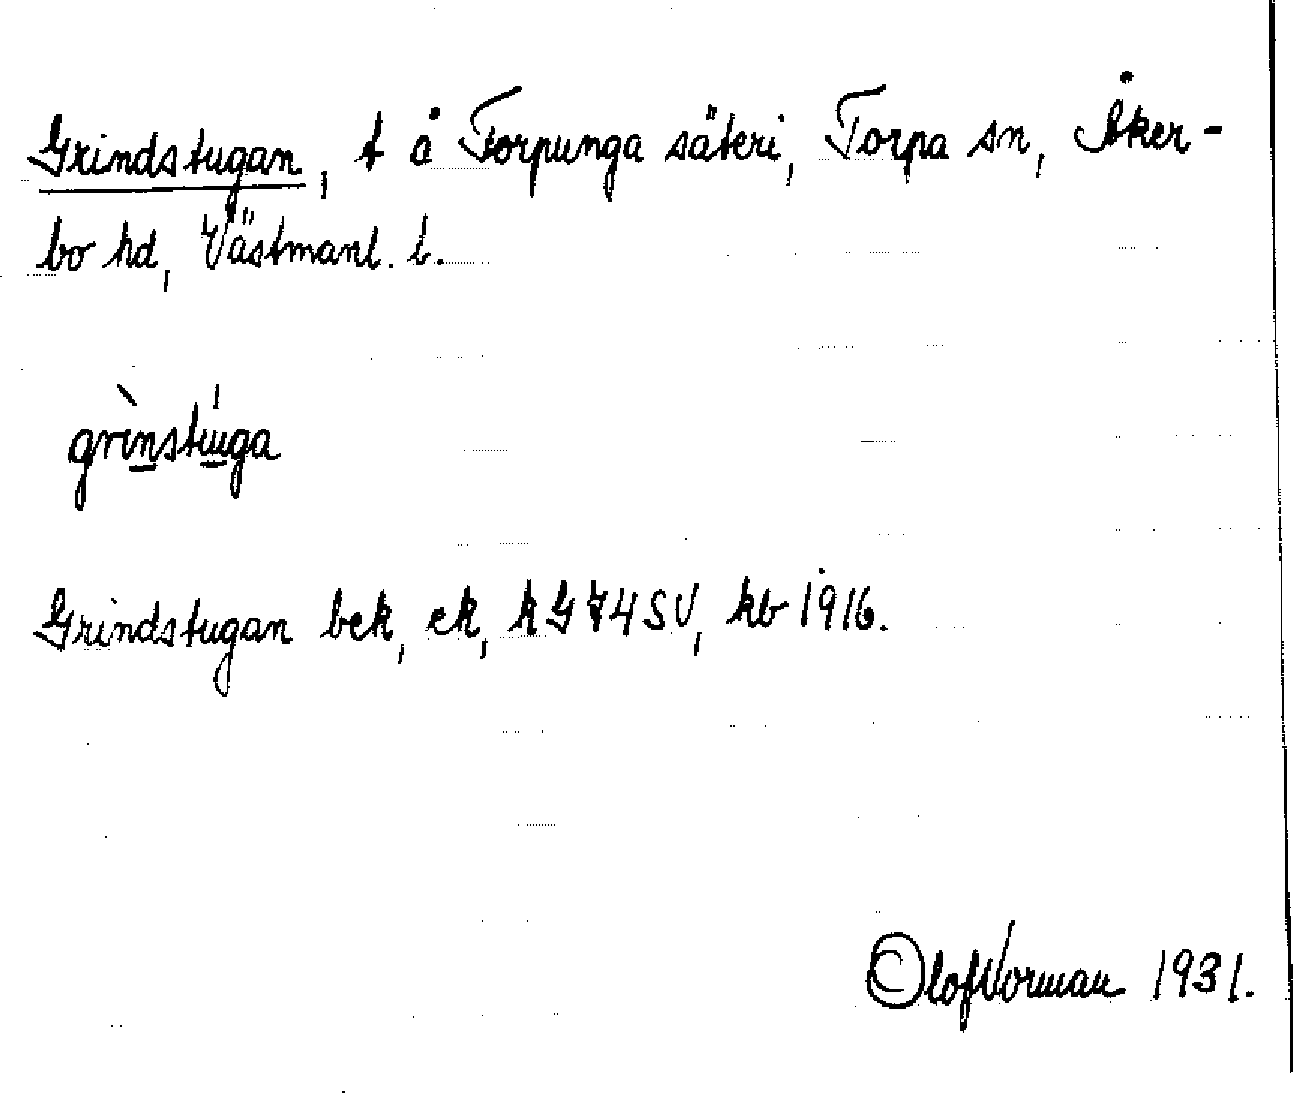 Grindstugan, t å Torpunga säteri, Torpa sn, Åker-
bo hd, Västmanl. l.
grìnstúga
Grindstugan bek, ek, k G 74 SV, kb 1916.
Olof Norman 1931.